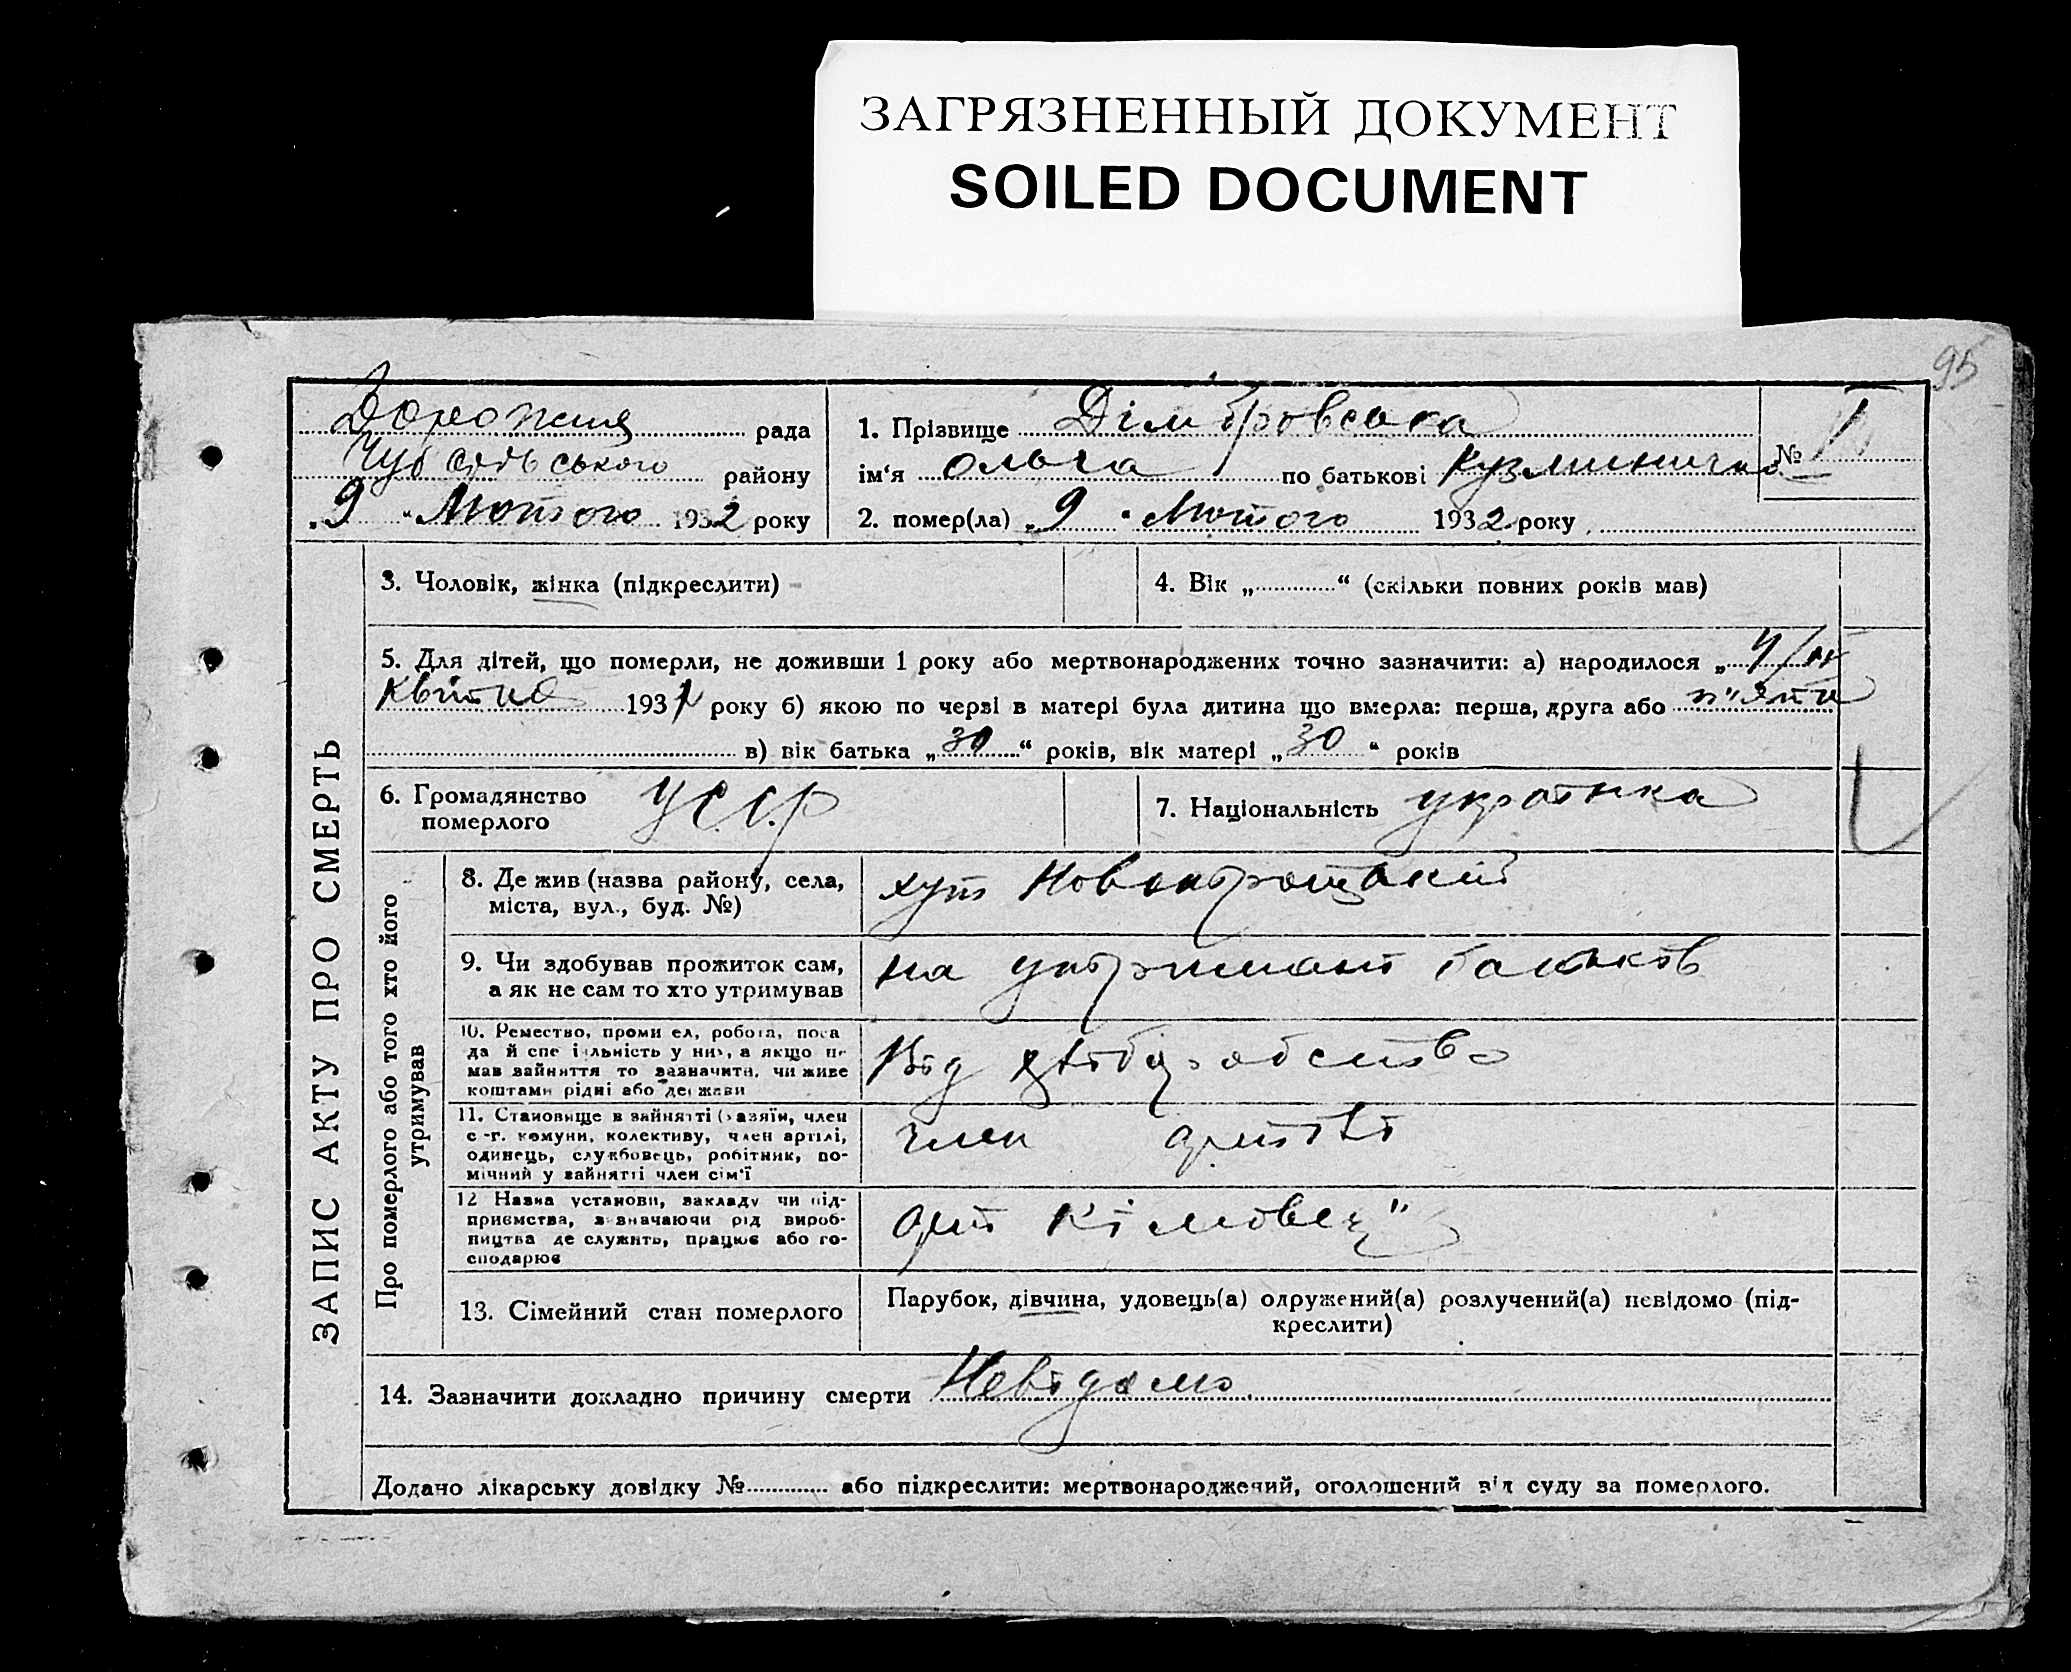 ЗАГРЯЗНЕННЫЙ ДОКУМЕНТ
SOILED DOCUMENT
95
рада
району
„9“ Лютого 1932 року
1. Прізвище Дімбровська
ім‘я Ольга по батькові
№ 1
2. помер(ла) „9“ Лютого 1932 року
ЗАПИС АКТУ ПРО СМЕРТЬ
3. Чоловік, жінка (підкреслити)
4. Вік „ “ (скільки повних років мав)
5. Для дітей, що померли, не доживши 1 року або мертвонароджених точно зазначити: а) народилося „
Квітня 1931 року б) якою по черзі в матері була дитина що вмерла: перша, друга або п'ята
в) вік батька „30“ років, вік матері „30“ років
6. Громадянство
померлого
УССР
7. Національність українка
Про померлого або того хто його
утримував
8. Де жив (назва району, села,
міста, вул., буд. №)
хут
9. Чи здобував прожиток сам,
а як не сам то хто утримував
на утриманні батьків
10. Ремество, промисел, робота, поса
да й спеціяльність у ній, а якщо не
мав зайняття то зазначити, чи живе
коштами рідні або держави
хліборобство
11. Становище в зайнятті (хазяїн, член
с.-г. комуни, колективу, член артілі,
одинець, службовець, робітник, по-
мічний у зайнятті член сім'ї
член артілі
12 Назва установи, закладу чи під-
приємства, зазначаючи рід вироб-
ництва де служить, працює або го-
сподарює
арт Кімовец"
13. Сімейний стан померлого
Парубок, дівчина, удовець(а) одружений(а) розлучений(а) невідомо (під-
креслити)
14. Зазначити докладно причину смерти Невідомо
Додано лікарську довідку № або підкреслити: мертвонароджений, оголошений від суду за померлого.